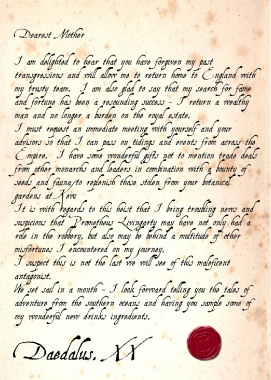 Dearest Mother
I am delighted to hear that you have forgiven my past
transgressions and will allow me to return home to England with
my trusty team. I am also glad to say that my search for fame
and fortune has been a resounding success - I return a wealthy
man and no longer a burden on the royal estate.
I must request an immediate meeting with yourself and your
advisors so that I can pass on tidings and events from across the
Empire. I have some wonderful gifts, not to mention trade deals
from other monarchs and leaders in combination with a bounty of
seeds and fauna to replenish those stolen from your botanical
gardens at Kew.
It is with regards to this heist that I bring troubling news and
suspicions that Prometheus may have not only had a
role in the robbery, but also may be behind a multitude of other
misfortunes I encountered on my journey.
I suspect this is not the last we will see of this maleficent
antagonist.
We set sail in a month - I look forward telling you the tales of
adventure from the southern oceans and having you sample some of
my wonderful new drinks ingredients.
Daedalus. XX